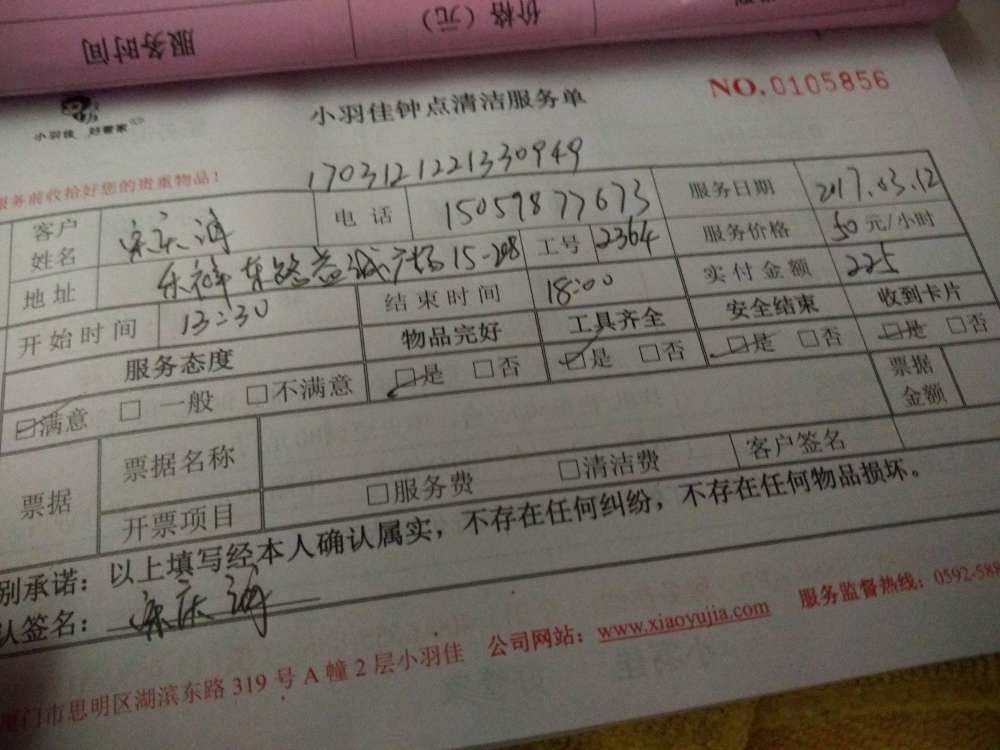 服务时间 价格（元）
小羽佳 好管家
小羽佳钟点清洁服务单
NO.0105856
服务前收拾好您的贵重物品！
1703121221330949
客户姓名 宋庆海 电话 15059877673 服务日期 2017.03.12
地址 乐祥东路益诚广场15-208 工号 2364 服务价格 50元/小时
开始时间 13:30 结束时间 18:00 实付金额 225
服务态度 物品完好 工具齐全 安全结束 收到卡片
☑满意 □一般 □不满意 ☑是 □否 ☑是 □否 ☑是 □否 ☑是 □否
票据 票据名称 票据金额
开票项目 □服务费 □清洁费 客户签名
别承诺：以上填写经本人确认属实，不存在任何纠纷，不存在任何物品损坏。
认签名：宋庆海
厦门市思明区湖滨东路319号A幢2层小羽佳 公司网站：www.xiaoyujia.com 服务监督热线：0592-588